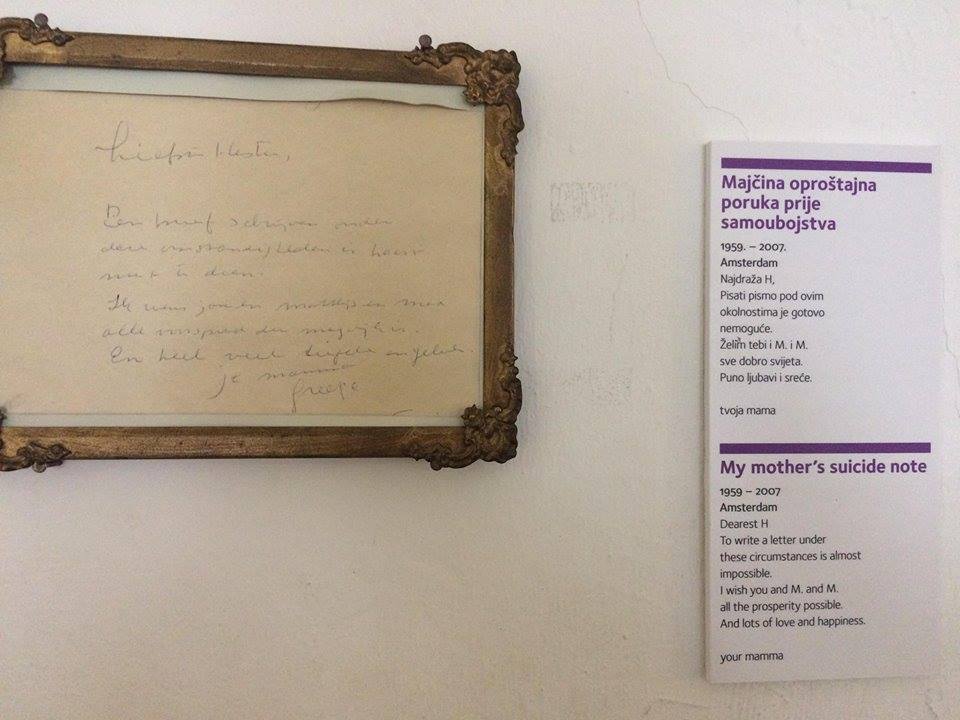 Een brief schrijven onder
deze omstandigheden is haast
niet te doen.
Ik wens jou en
alle voorspoed der mogelijk is.
En heel veel liefde en geluk.
je mamma
Majčina oproštajna
poruka prije
samoubojstva
1959. – 2007.
Amsterdam
Najdraža H,
Pisati pismo pod ovim
okolnostima je gotovo
nemoguće.
Želim tebi i M. i M.
sve dobro svijeta.
Puno ljubavi i sreće.
tvoja mama
My mother's suicide note
1959 – 2007
Amsterdam
Dearest H
To write a letter under
these circumstances is almost
impossible.
I wish you and M. and M.
all the prosperity possible.
And lots of love and happiness.
your mamma